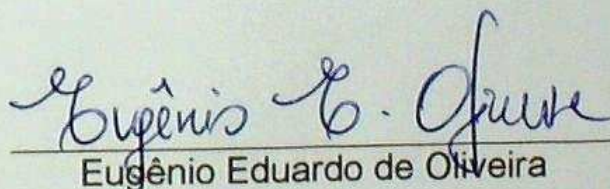 Eugênio E. Oliveira
Eugênio Eduardo de Oliveira